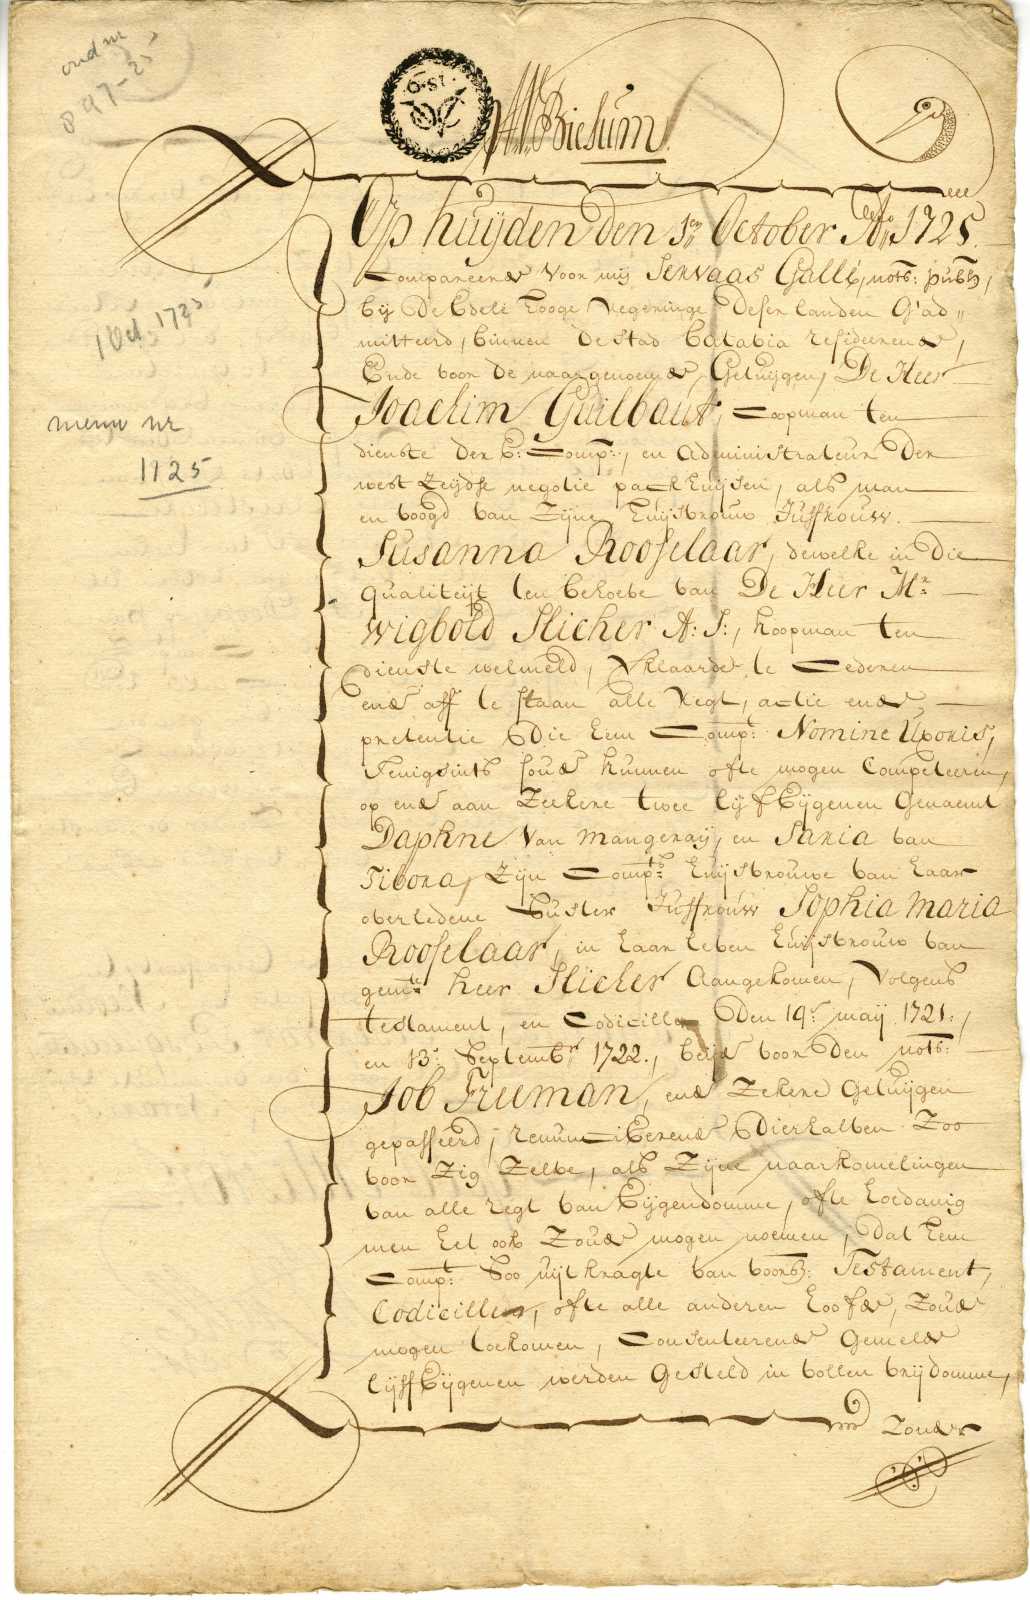 oud nr
897-25
6 St:
Biesum.
Op huijden den 1en October Ao 1725.
Compareerde voor mij Servaas Gallé, nots: publq,
bij De Edele Hooge Regeringe deser landen G'ad„
mitteerd, binnen de stad Batavia resideerende,
Ende voor de naargenoemde Getuijgen, De Heer
1 Oct. 1725
Joachim Guilbaut, Coopman ten
nieuw nr
1725
dienste der E: Comp:, en Administrateur der
west zeijdse negotie packhuijsen, als man
en voogd van Zijne huijsvrouw Juffrouw.
Susanna Rooselaar, dewelke in die
qualiteijt ten behoeve van De Heer Mr:
Wigbold Slicher A: S:, koopman ten
dienste welmeld, verklaarde te Cederen
ende aff te staan alle regt, actie ende
pretentie die hem Compt: Nomine Uxoris,
Eenigsints soude kunnen ofte mogen Competeeren,
op ende aan Zeekere twee lijfEijgenen Genaemt
Daphne van mangeraij, en Saria van
Tibora, Zijn Compts: huijsvrouwe van haar
overledene Suster Juffrouw Sophia Maria
Rooselaar, in haar leven huijsvrouw van
gemte: heer Slicher Aangekomen, volgens
testament, en Codicille den 19e: maij 1721:,
en 13e: Septembr 1722., beijde voor den nots:
Job Freeman, ende Zekere Getuijgen
gepasseerd; renuncieerende dierhalven Zoo
voor Zig Zelve, als Zijne naarkomelingen
van alle regt van Eijgendomme, ofte hoedanig
men het ook Zoude mogen noemen, dat hem
Compt: soo uijt kragte van voorsz: Testament,
Codicille, ofte alle anderen hoofde, Zoude
mogen toekomen, Consenteerende Gemelde
lijffEijgenen werden Gesteld in vollen vrijdomme,
Zonder